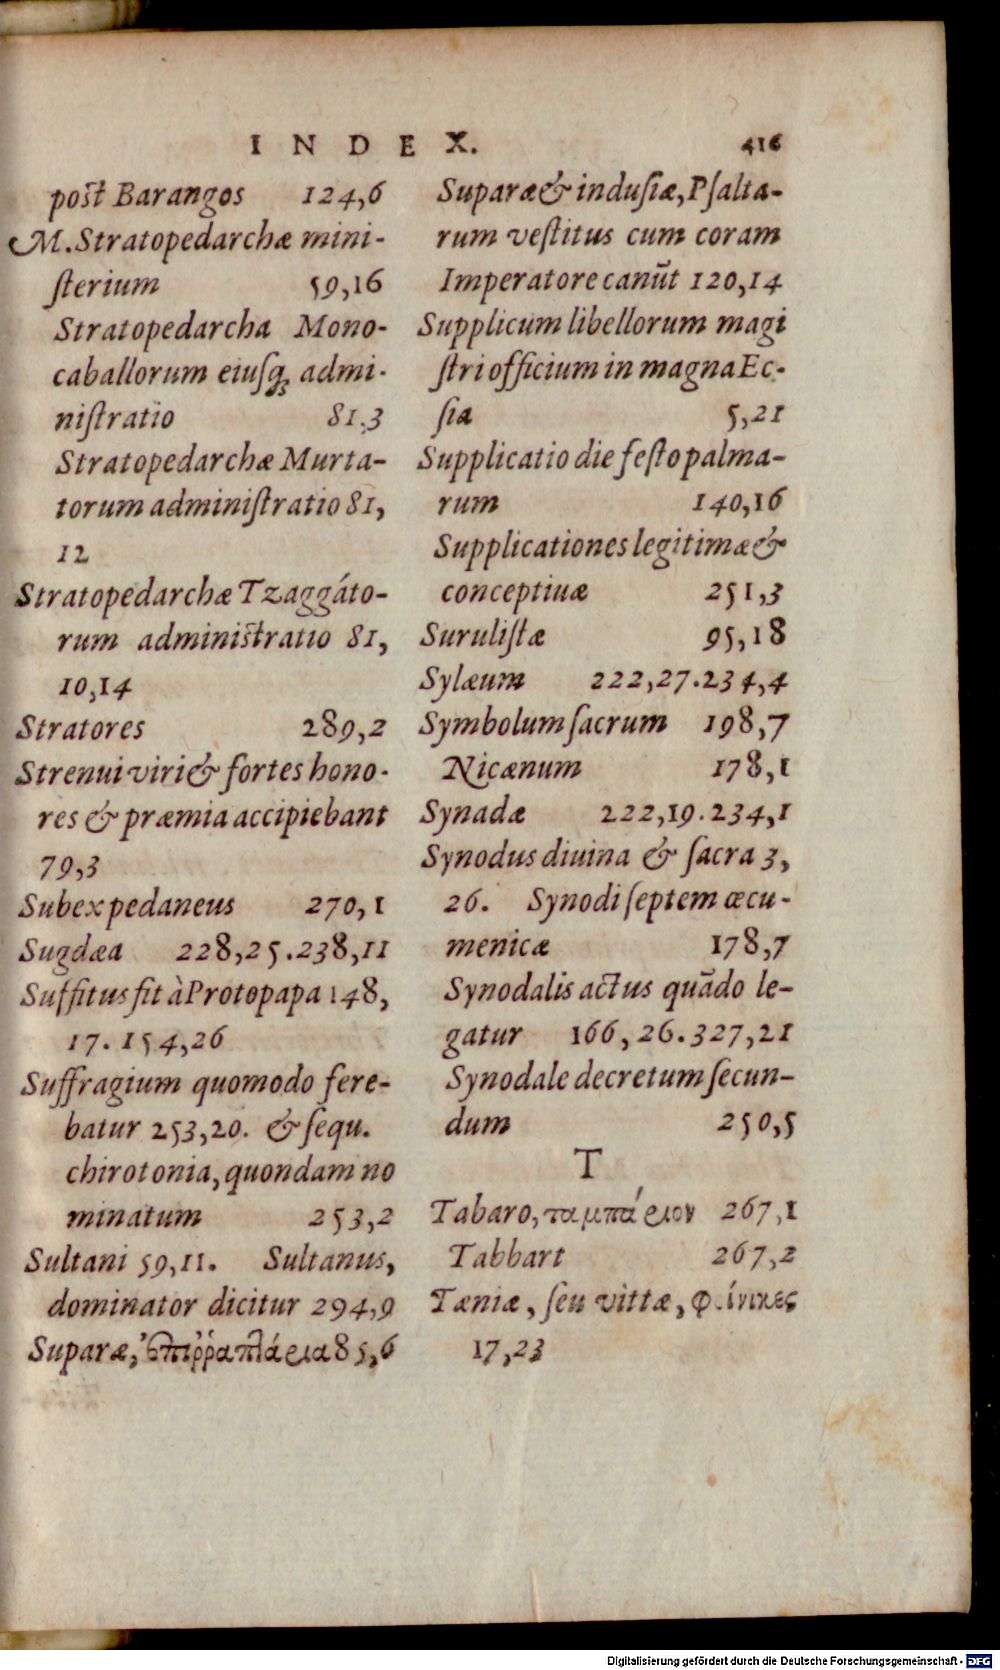 INDEX. 416
post Barangos 124,6
M. Stratopedarchæ mini-
ſterium 59,16
Stratopedarcha Mono-
caballorum eiuſq; admi-
niſtratio 81,3
Stratopedarchæ Murta-
torum adminiſtratio 81,
12
Stratopedarchæ Tzaggáto-
rum adminiſtratio 81,
10,14
Stratores 289,2
Strenui viri & fortes hono-
res & præmia accipiebant
79,3
Subex pedaneus 270,1
Sugdæa 228,25.238,11
Suffitus fit à Protopapa 148,
17. 154,26
Suffragium quomodo fere-
batur 253,20. & ſequ.
chirotonia, quondam no
minatum 253,2
Sultani 59,11. Sultanus,
dominator dicitur 294,9
Suparæ, 85,6
Suparæ & induſiæ, Pſalta-
rum veſtitus cum coram
Imperatore canūt 120,14
Supplicum libellorum magi
ſtri officium in magna Ec-
ſia 5,21
Supplicatio die feſto palma-
rum 140,16
Supplicationes legitimæ &
conceptiuæ 251,3
Suruliſtæ 95,18
Sylæum 222,27.234,4
Symbolum ſacrum 198,7
Nicænum 178,1
Synadæ 222,19.234,1
Synodus diuina & ſacra 3,
26. Synodi ſeptem œcu-
menicæ 178,7
Synodalis actus quādo le-
gatur 166,26.327,21
Synodale decretum ſecun-
dum 250,5
T
Tabaro, ταμπάριον 267,1
Tabbart 267,2
Tæniæ, ſeu vittæ, φοίνικες
17,23
Digitalisierung gefördert durch die Deutsche Forschungsgemeinschaft - DFG